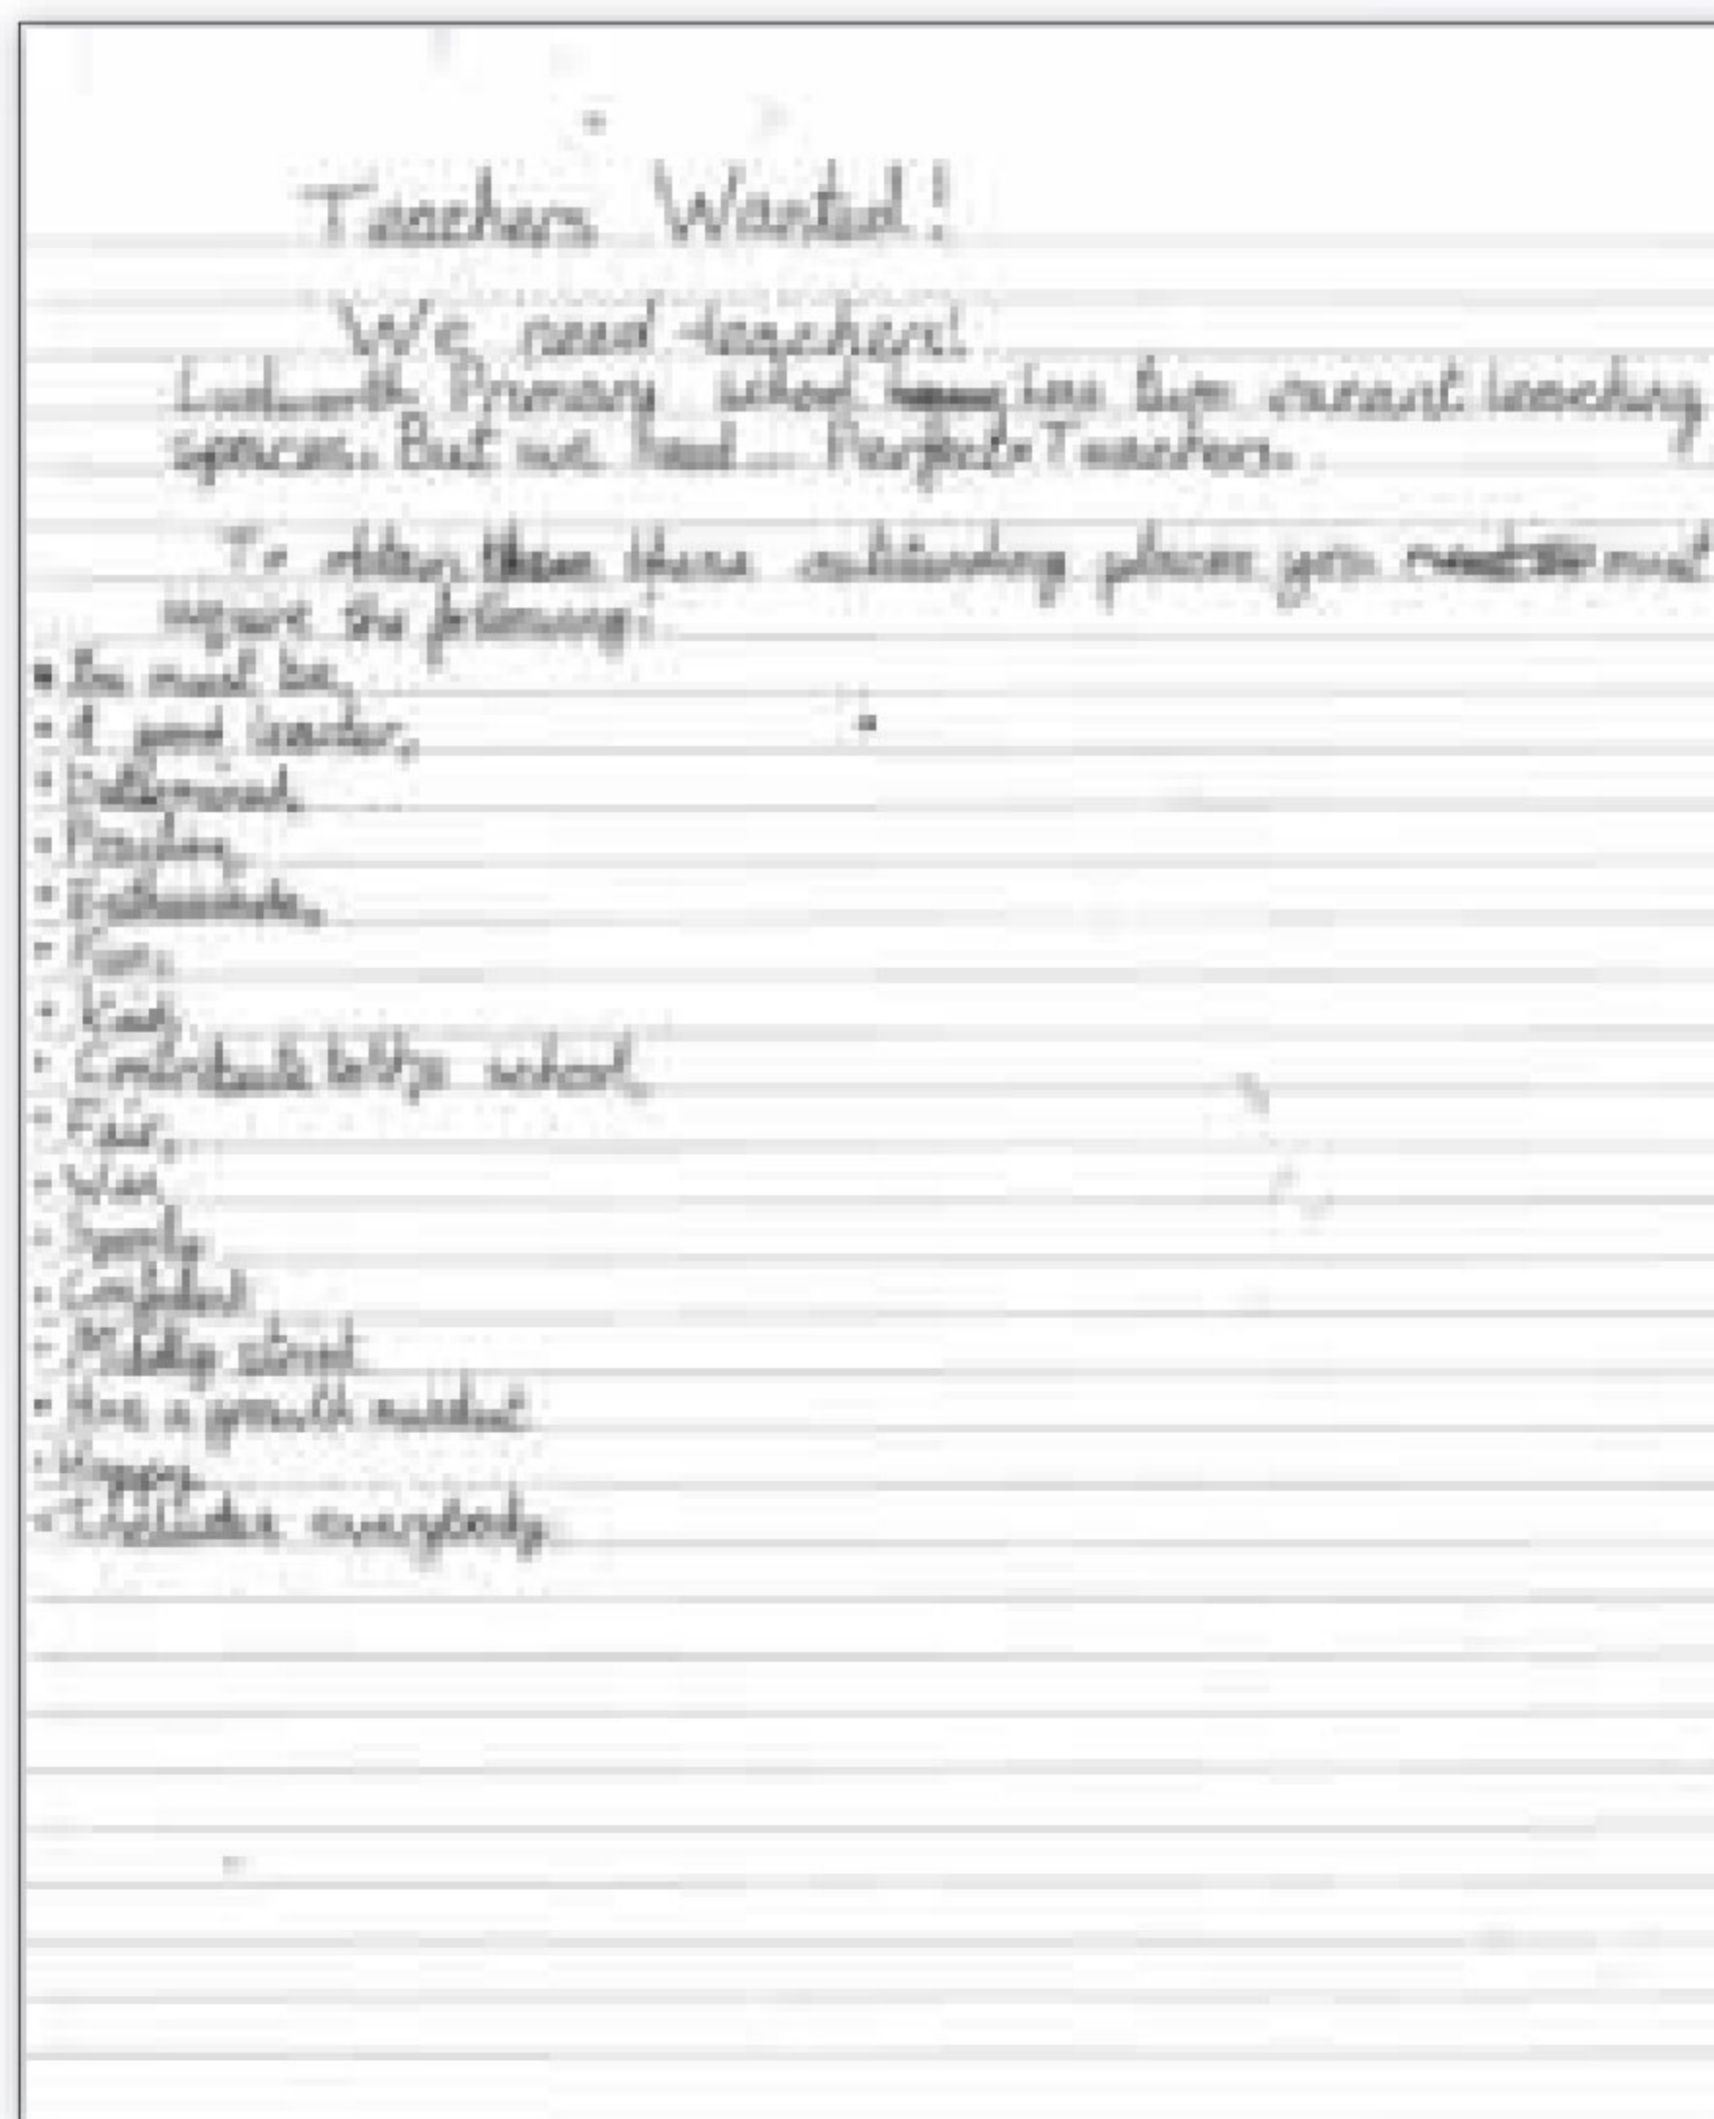 Teachers Wanted!
We need teachers!
Ludworth Primary school has two vacant teaching
spaces. But we need... Perfect Teachers.
To obtain these outstanding places you must
the following:
• You must be,
• A good leader,
• Determined,
•
• Enthusiastic,
• Fun,
• Kind,
• Contribute to the school,
• Fair,
•
• Sporty,
• Confident
• strict
• Have a growth mindset
• Happy,
• Includes everybody.